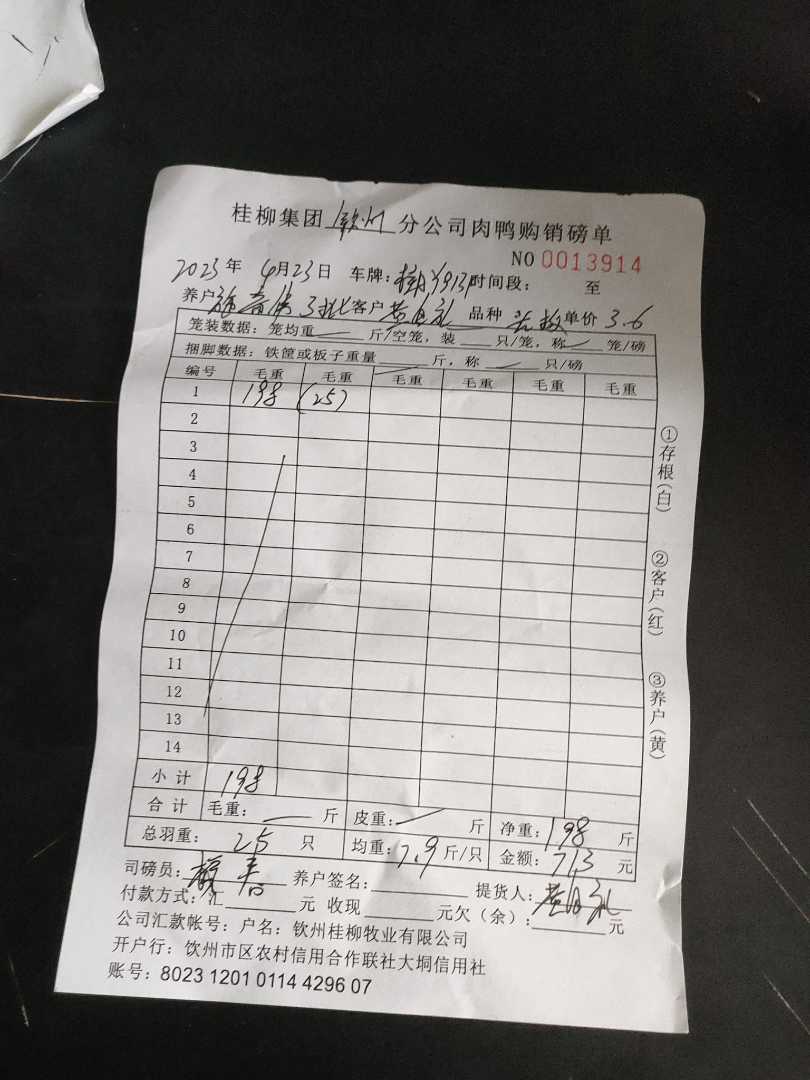 桂柳集团 钦州 分公司肉鸭购销磅单
NO 0013914
2023 年 4 月 23 日 车牌: 时间段: 至
养户 3批 客户 黄 礼 品种 单价 3.6
笼装数据: 笼均重 斤/空笼, 装 只/笼, 称 笼/磅
捆脚数据: 铁筐或板子重量 斤, 称 只/磅
编号 毛重 毛重 毛重 毛重 毛重 毛重
1 198 (25)
2
3
4
5
6
7
8
9
10
11
12
13
14
小计 198
合计 毛重: 斤 皮重: 斤 净重: 198 斤
总羽重: 25 只 均重: 7.9 斤/只 金额: 713 元
司磅员: 养户签名: 提货人: 黄 礼
付款方式: 汇 元 收现 元欠(余): 元
公司汇款帐号: 户名: 钦州桂柳牧业有限公司
开户行: 饮州市区农村信用合作联社大垌信用社
账号: 8023 1201 0114 4296 07
①存根(白)
②客户(红)
③养户(黄)